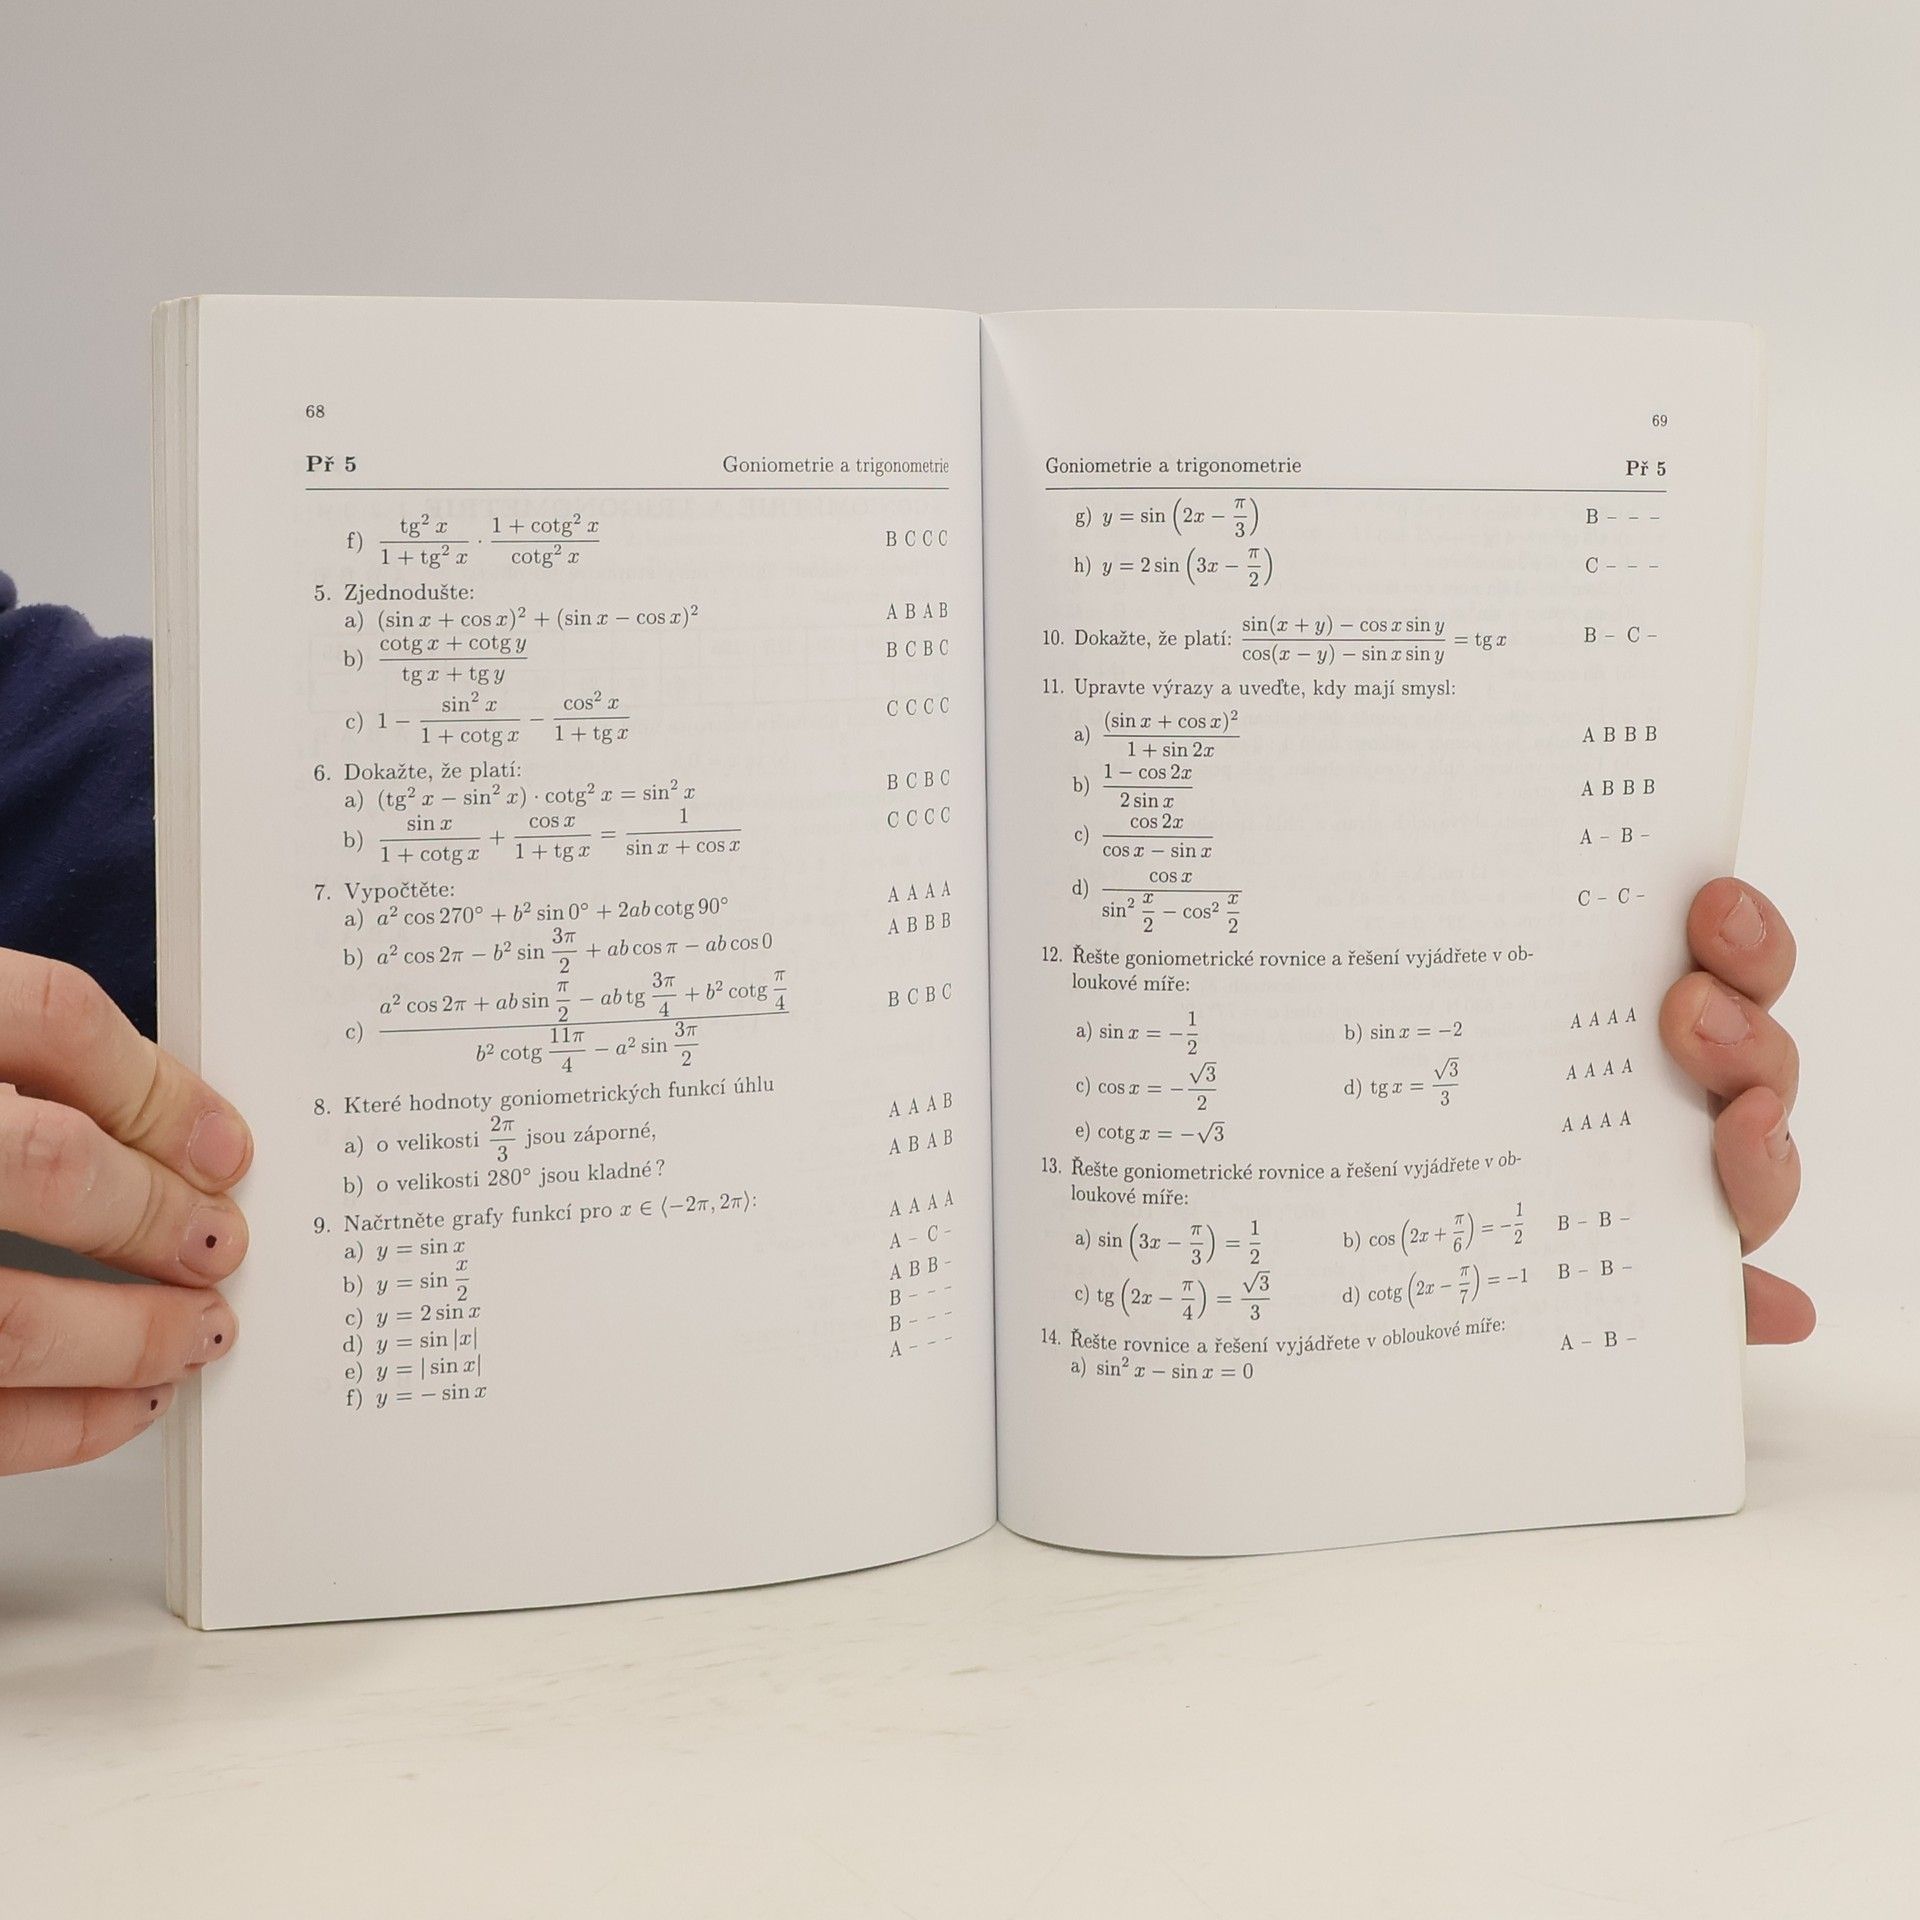 68
Př 5 Goniometrie a trigonometrie
f) tg² x / (1 + tg² x) · (1 + cotg² x) / cotg² x B C C C
5. Zjednodušte:
a) (sin x + cos x)² + (sin x − cos x)² A B A B
b) (cotg x + cotg y) / (tg x + tg y) B C B C
c) 1 − sin² x / (1 + cotg x) − cos² x / (1 + tg x) C C C C
6. Dokažte, že platí:
a) (tg² x − sin² x) · cotg² x = sin² x B C B C
b) sin x / (1 + cotg x) + cos x / (1 + tg x) = 1 / (sin x + cos x) C C C C
7. Vypočtěte:
a) a² cos 270° + b² sin 0° + 2ab cotg 90° A A A A
b) a² cos 2π − b² sin 3π/2 + ab cos π − ab cos 0 A B B B
c) (a² cos 2π + ab sin π/2 − ab tg 3π/4 + b² cotg π/4) / (b² cotg 11π/4 − a² sin 3π/2) B C B C
8. Které hodnoty goniometrických funkcí úhlu
a) o velikosti 2π/3 jsou záporné, A A A B
b) o velikosti 280° jsou kladné? A B A B
9. Načrtněte grafy funkcí pro x ∈ ⟨−2π, 2π⟩:
a) y = sin x A A A A
b) y = sin x/2 A – C –
c) y = 2 sin x A B B –
d) y = sin |x| B – – –
e) y = | sin x| B – – –
f) y = − sin x A – – –
69
Goniometrie a trigonometrie Př 5
g) y = sin (2x − π/3) B – – –
h) y = 2 sin (3x − π/2) C – – –
10. Dokažte, že platí: (sin(x + y) − cos x sin y) / (cos(x − y) − sin x sin y) = tg x B – C –
11. Upravte výrazy a uveďte, kdy mají smysl:
a) (sin x + cos x)² / (1 + sin 2x) A B B B
b) (1 − cos 2x) / (2 sin x) A B B B
c) cos 2x / (cos x − sin x) A – B –
d) cos x / (sin² x/2 − cos² x/2) C – C –
12. Řešte goniometrické rovnice a řešení vyjádřete v ob-
loukové míře:
a) sin x = −1/2 b) sin x = −2 A A A A
c) cos x = −√3/2 d) tg x = √3/3 A A A A
e) cotg x = −√3 A A A A
13. Řešte goniometrické rovnice a řešení vyjádřete v ob-
loukové míře:
a) sin (3x − π/3) = 1/2 b) cos (2x + π/6) = −1/2 B – B –
c) tg (2x − π/4) = √3/3 d) cotg (2x − π/7) = −1 B – B –
14. Řešte rovnice a řešení vyjádřete v obloukové míře:
a) sin² x − sin x = 0 A – B –